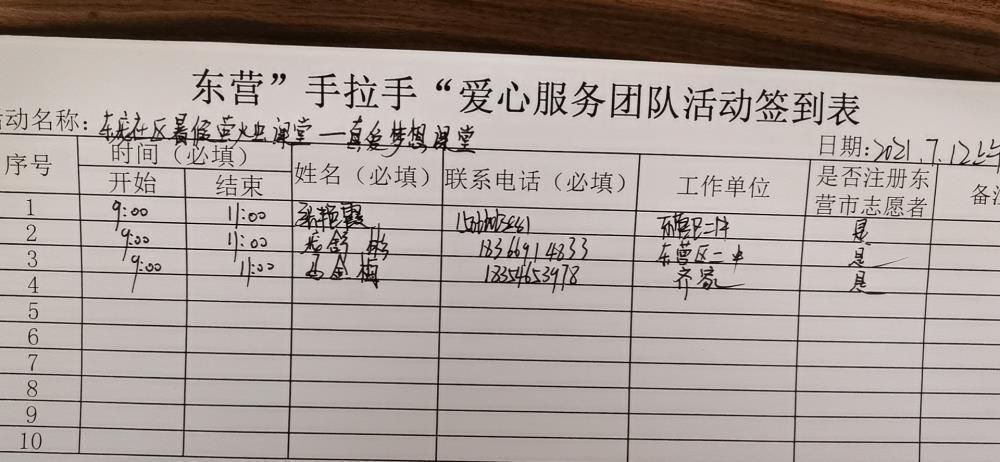 东营”手拉手“爱心服务团队活动签到表
活动名称：东城社区暑假萤火虫课堂—真爱梦想课堂
日期：2021.7.12上午
序号 时间（必填） 姓名（必填） 联系电话（必填） 工作单位 是否注册东营市志愿者 备注
开始 结束
1 9:00 11:00 霞 是
2 9:00 11:00 18366914833 东营区二中 是
3 9:00 11:00 金梅 18354653978 齐家 是
4
5
6
7
8
9
10